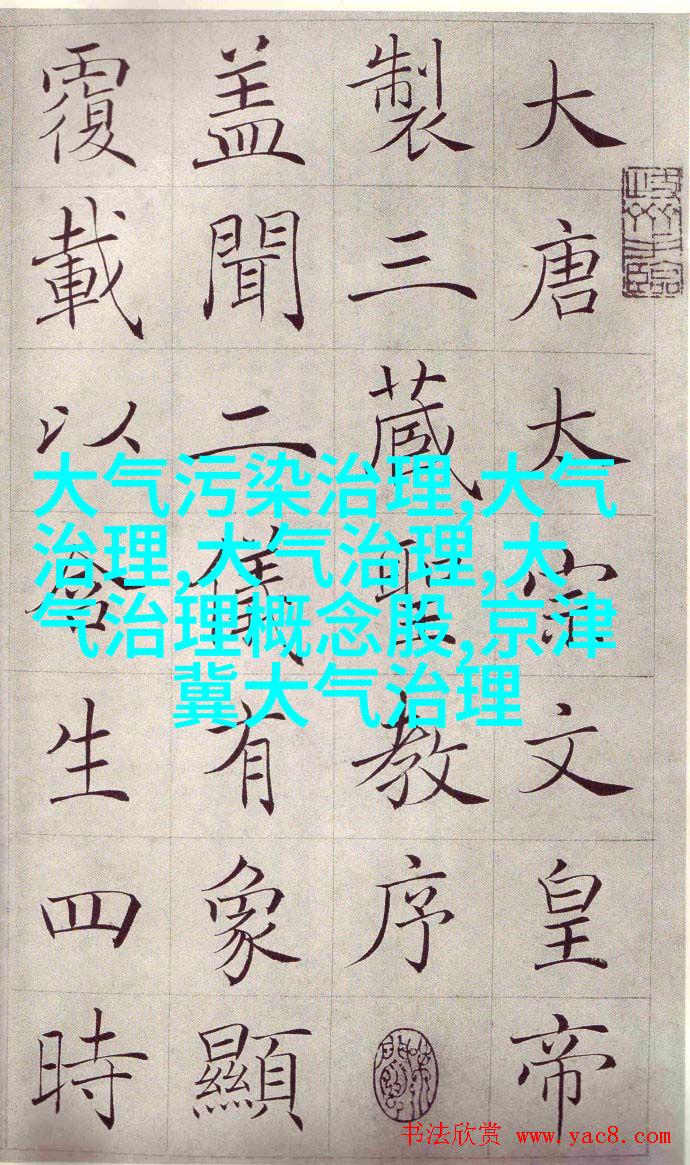 大唐太宗文皇帝
製三藏聖教序
盖聞二儀有象顯
覆載以含生四時
大气污染治理,大气
治理,大气治理,大
气治理概念股,京津
冀大气治理
书法欣赏 www.yac8.com